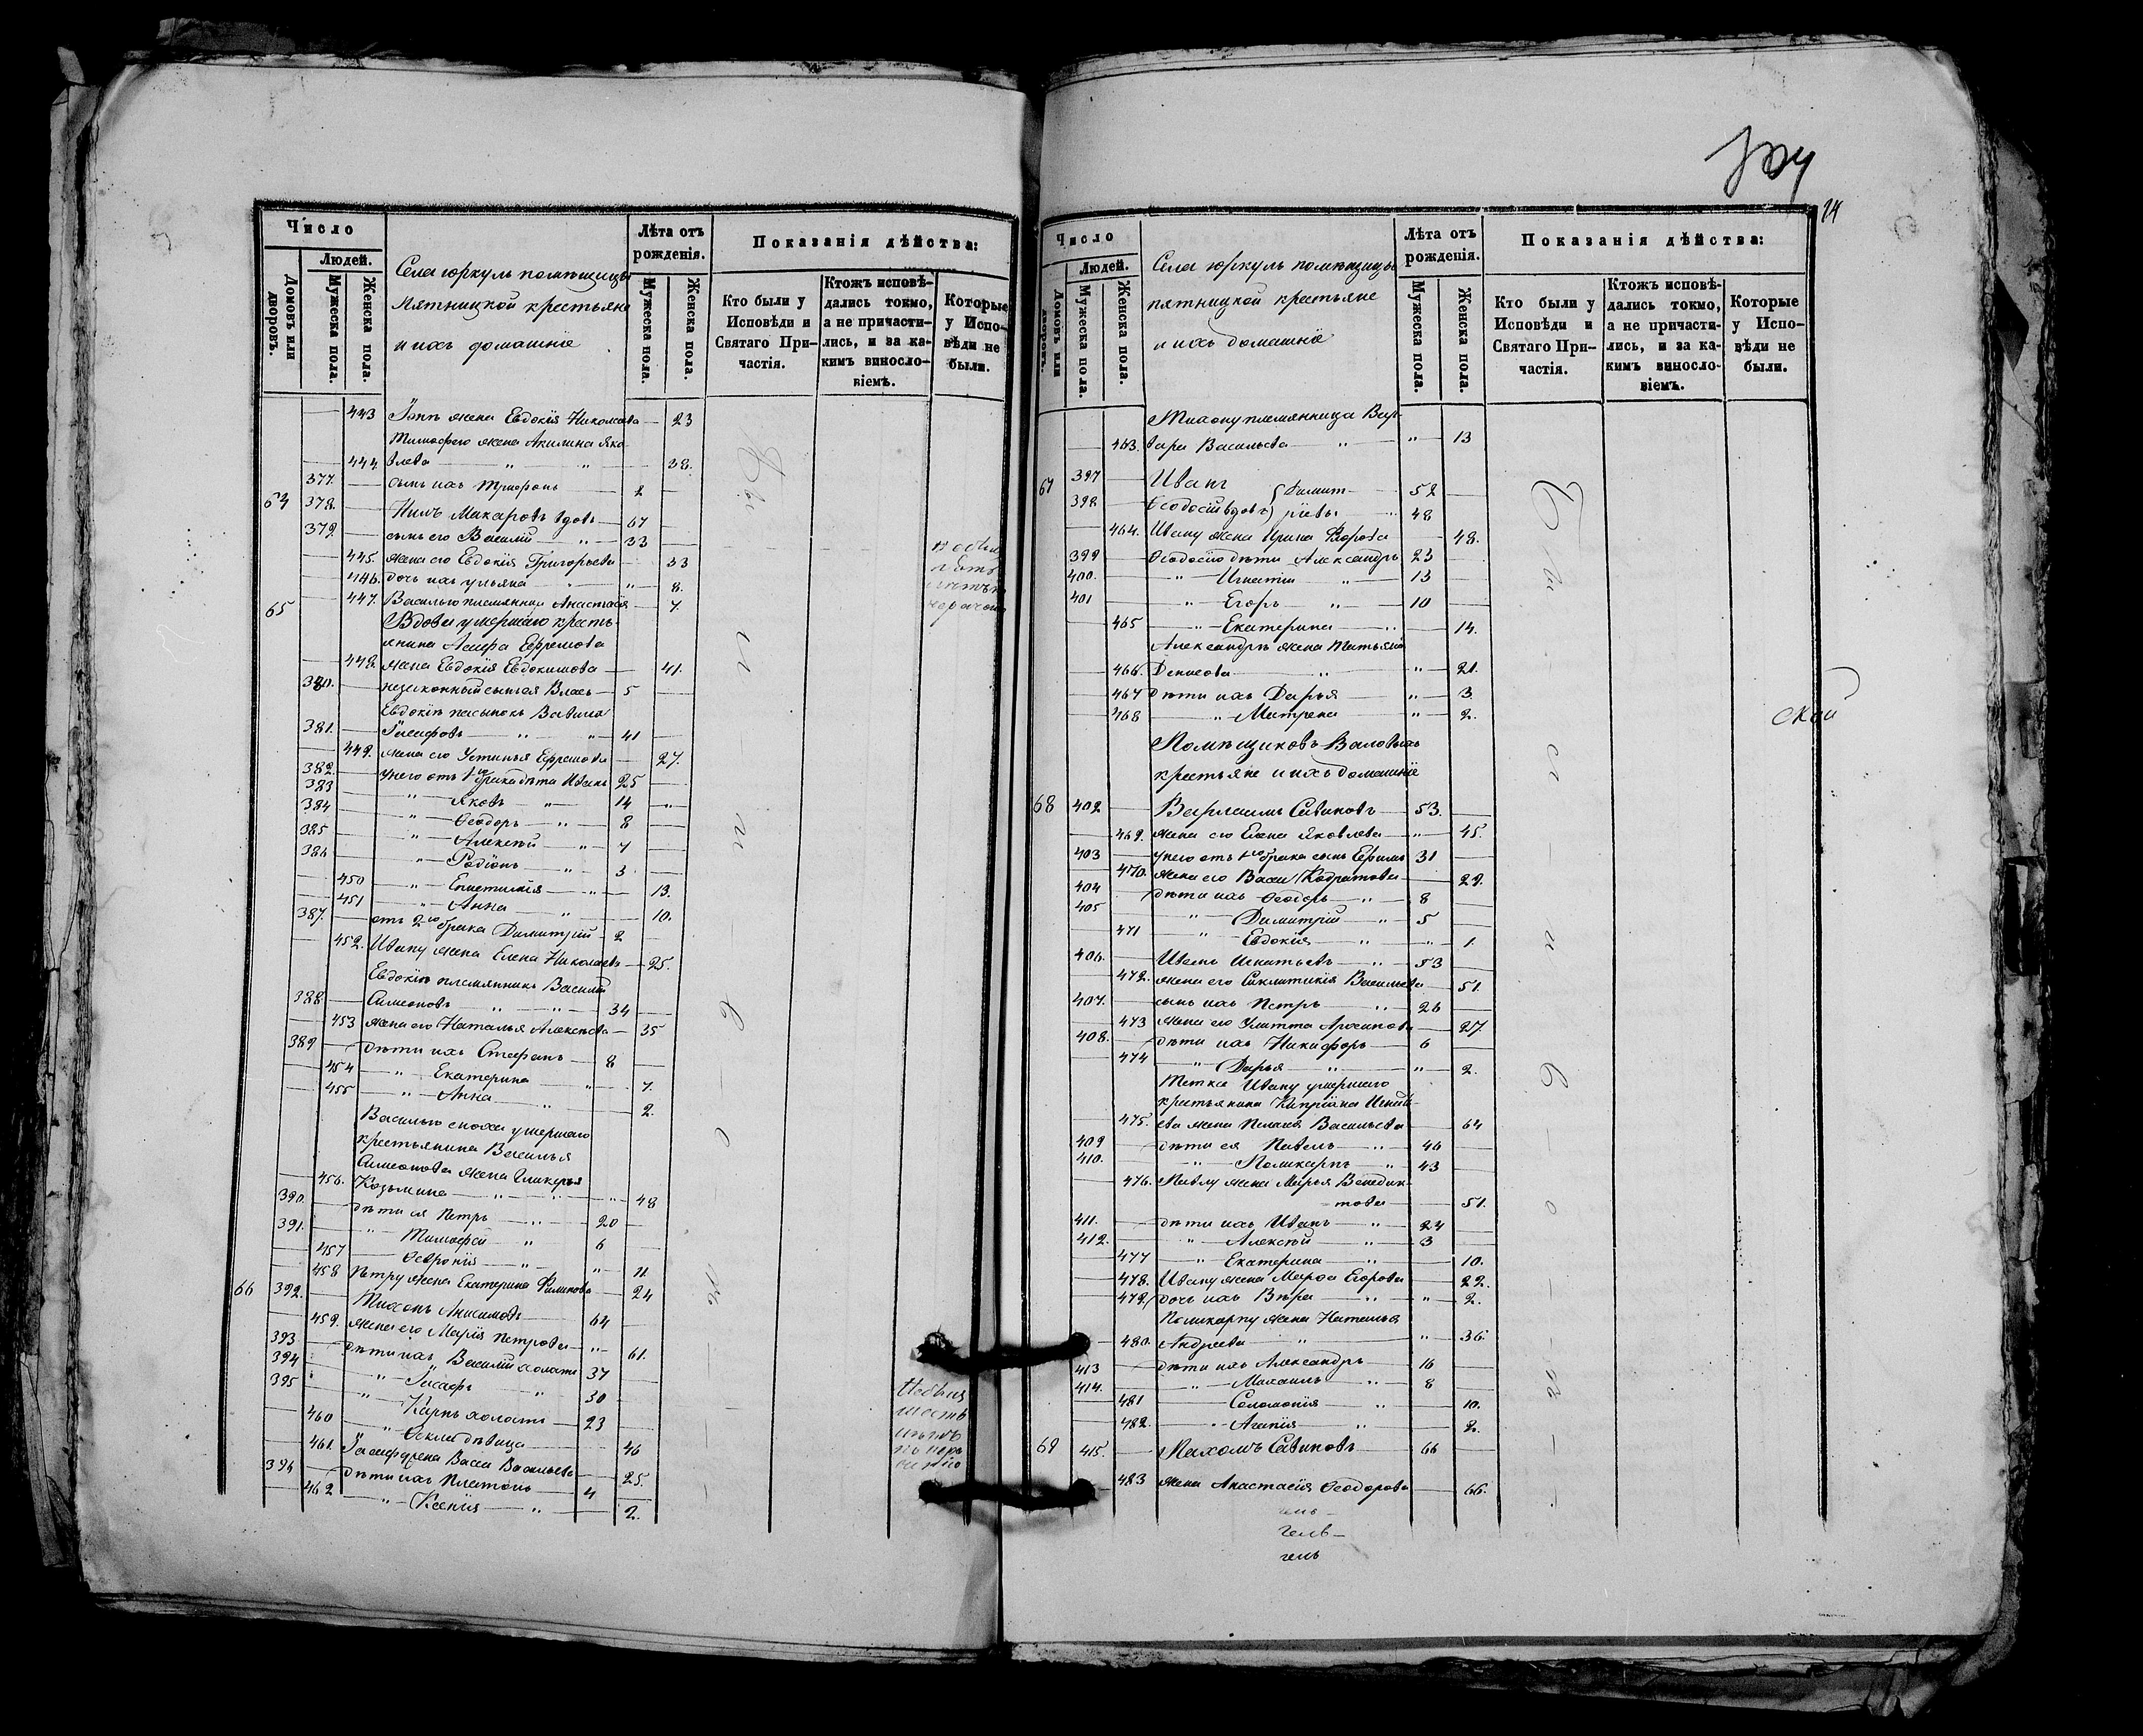 Число
Людей.
Домовъ или дворовъ.
Мужеска пола.
Женска пола.
Села юркуль помѣщицы
Пятницкой крестьяне
и ихъ домашніе
Лѣта отъ рожденія.
Мужеска пола.
Женска пола.
Показанія дѣйства:
Кто были у Исповѣди и Святаго При-частія.
Ктожъ исповѣ-дались токмо, а не причасти-лись, и за ка-кимъ винослo-віемъ.
Которые у Испо-вѣди не были.
443 жена Евдокія Николаева — 23
Тимофею жена Акилина Яко-
444. влева — " — " — 38.
377. сынъ ихъ Трифонъ — 2
64 378. Нилъ Макаровъ вдовъ — 67
379. сынъ его Василій — " — 33
445. жена его Евдокія Григорьева — 33
446. дочь ихъ ульяна — " — 8.
447. Василью племянница Анастасія — 7.
65 Вдова умершаго кресть-
янина Ефремова
448. жена Евдокія Евдокимова — 41.
380. незаконный сынъ ея Власъ — 5
Евдокіи пасынокъ Вавила
381. Іосифовъ — " — " — 41
449. жена его Устинья Ефремова — 27.
382. у него отъ 1го брака дѣти Иванъ 25
383 " — Яковъ — " — 14
384 " — Ѳеодоръ — " — 8
385 " — Алексѣй — " — 7
386 " — Родіонъ — " — 3
450 " — Епистимія — " — 13.
451 " — Анна — " — 10.
387. отъ 2го брака Димитрій — 2
452. Ивану жена Елена Николаева — 25.
Евдокіи племянникъ Василій
388 Симеоновъ — " — " — 34
453 жена его Наталья Алексѣева — 35
389 дѣти ихъ Стефанъ — 8
454 " — Екатерина — " — 7.
455 " — Анна — " — 2.
Василью сноха умершаго
крестьянина Василья
Симеонова жена Гликерья
456. Козьмина — " — " — 48
390. дѣти ея Петръ — " — 20
391. " — Тимофей — " — 6
457 — Ѳевронія — " — 11
458 Петру жена Екатерина Филипова — 24
66 392. Тихонъ Анисимовъ — 64
459. жена его Марія Петрова — " — 61.
393 дѣти ихъ Василій холостъ 37
394 " — Іосафъ — " — 30
395 " — Карпъ холостъ — 23
460 " — Ѳекла дѣвица — 46
461. жена Васса Васильева — 25.
396 дѣти ихъ Платонъ — 4
462 " — Ксенія — " — 2.
24
Число
Людей.
Домовъ или дворовъ.
Мужеска пола.
Женска пола.
Села юркуль помѣщицы
пятницкой крестьяне
и ихъ домашніе
Лѣта отъ рожденія.
Мужеска пола.
Женска пола.
Показанія дѣйства:
Кто были у Исповѣди и Святаго При-частія.
Ктожъ исповѣ-дались токмо, а не причасти-лись, и за ка-кимъ винослo-віемъ.
Которые у Испо-вѣди не были.
Тихону племянница Вар-
463. вара Васильева — " — " — 13
67 397 Иванъ } Димит- — 52
398 Ѳеодосій вдовъ } ріевы — 48
464. Ивану жена Ирина Фролова — 48.
399 Ѳеодосію дѣти Александръ 23
400. " — Игнатій — " — 13
401 " — Егоръ — " — 10
465 " — Екатерина — " — 14.
Александръ жена Татьяна
466. Денисова — " — " — 21.
467 дѣти ихъ Дарья — " — 3.
468 " — Матрена — " — 2.
Помѣщиковъ Валовыхъ
крестьяне и ихъ домашніе
68 402 Варлаамъ Савиновъ — 53.
469. жена его Елена Яковлева — " — 45.
403 у него отъ 1го брака сынъ Ефимъ 31
470. жена его Васса Кодратова — 29.
404 дѣти ихъ Ѳеодоръ — " — 8
405 " — Димитрій — " — 5
471 " — Евдокія — " — " — 1.
406. Иванъ Игнатьевъ — " — 53
472. жена его Синклитикія Васильева — 51.
407. сынъ ихъ Петръ — " — 26
473 жена его Улитта Архипова — 27.
408. дѣти ихъ Никифоръ — 6
474 " — Дарья — " — " — 2.
Тетка Ивану умершаго
крестьянина Кипріана Игнать-
475. ева жена Пелагія Васильева — 64
409 дѣти ея Павелъ — " — 46
410. " — Поликарпъ — " — 43
476. Павлу жена Марья Венедик-
това — 51.
411. дѣти ихъ Иванъ — " — 24
412. " — Алексѣй — " — 3
477 " — Екатерина — " — 10.
478. Ивану жена Марѳа Егорова — 22.
479. дочь ихъ Вѣра — " — " — 2.
Поликарпу жена Наталья
480. Андреева — " — " — 36.
413 дѣти ихъ Александръ — 16
414. " — Михаилъ — " — 8
481 — Соломонія — " — 10.
482. " — Агапія — " — 2.
69 415. Пахомъ Савиновъ — 66
483 жена Анастасія Ѳеодорова — 66.
ской